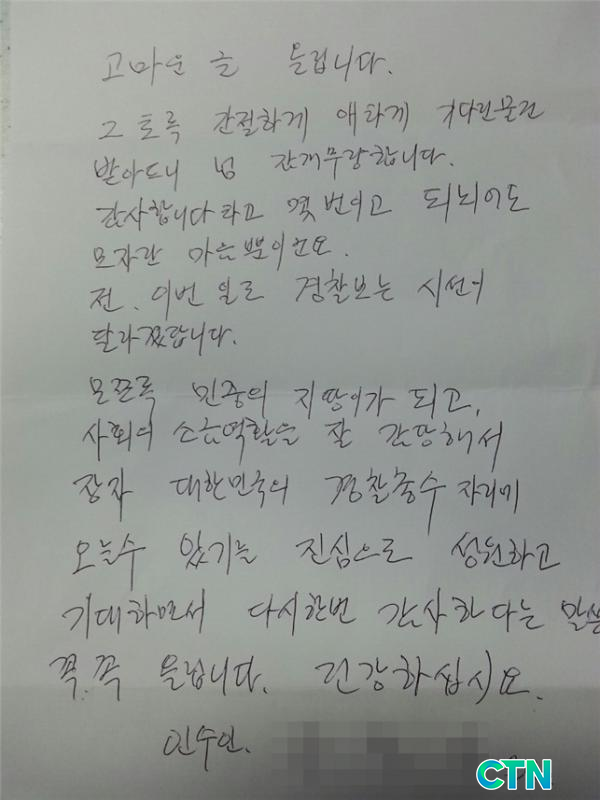 고마운 글 올립니다.
그토록 간절하게 애타게 기다린물건
받아드니 넘 감개무량합니다.
감사합니다라고 몇번이고 되뇌어도
모자란 마음뿐이군요.
전. 이번 일로 경찰보는 시선이
달라졌답니다.
모쪼록 민중의 지팡이가 되고,
사회의 소금역할을 잘 감당해서
장차 대한민국의 경찰총수 자리에
오늘수 있기를 진심으로 성원하고
기대하면서 다시한번 감사하다는 말씀
꼭.꼭 올립니다. 건강하십시오.
인수인.
CTN